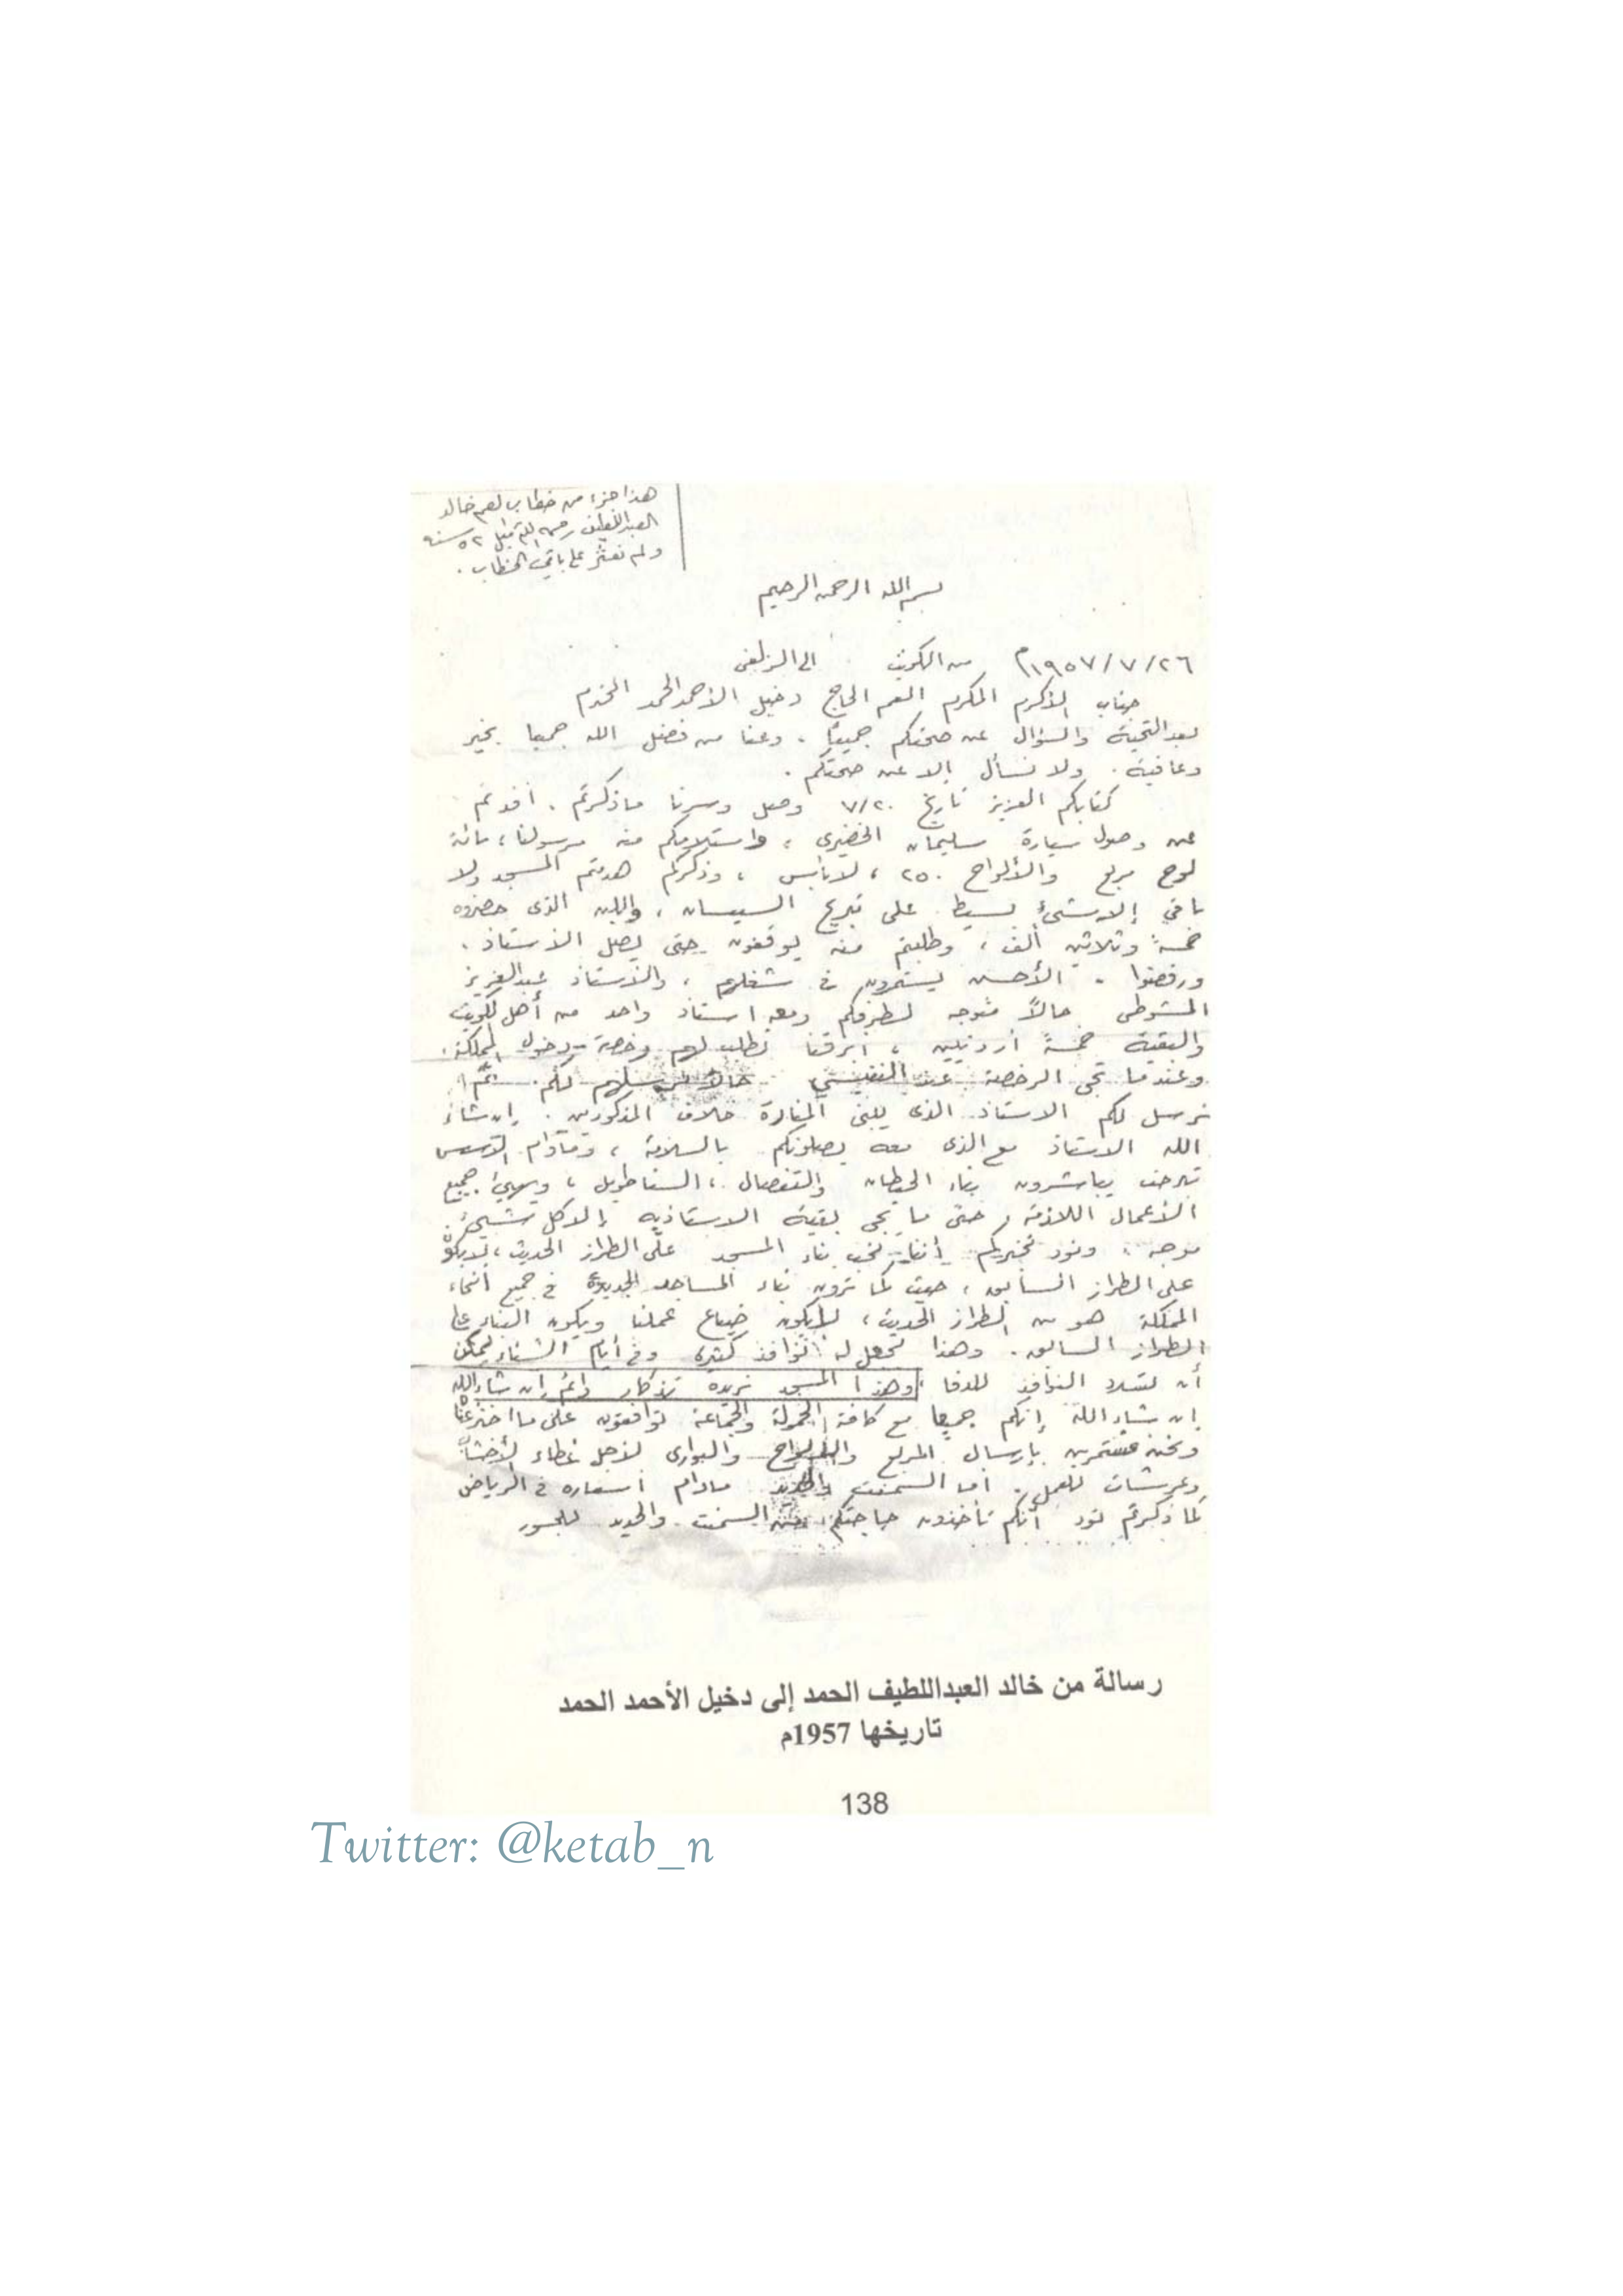 هذا جزء من خطاب لعم خالد
العبداللطيف رحمه الله قبل ٥٢ سنه
ولم نعثر على باقي الخطاب .
بسم الله الرحمن الرحيم
٢٦/٧/١٩٥٧م من الكويت الى الزلفي
جناب الأكرم المكرم العم الحاج دخيل الأحمد الحمد المحترم
بعد التحية والسؤال عن صحتكم جميعاً . وعنا من فضل الله جميعا بخير
وعافية . ولا نسأل إلا عن صحتكم .
كتابكم العزيز تاريخ ٧/٢٠ وصل وسرنا ما ذكرتم . أفدتم
عن وصول سيارة سليمان الخضيري ، واستلامكم منه مرسولنا ، مائة
لوح مربع والألواح ٢٥٠ ، لا بأس ، وذكركم هدمتم المسجد ولا
باقي إلا شيء بسيط على تبريع السيسان ، واللبن الذي حضروه
خمسة وثلاثين ألف ، وطلبتم منه يوقفون حتى يصل الأستاذ .
ورفضوا . الأحسن يستمرون في شغلهم ، والأستاذ عبدالعزيز
حالاً متوجه لطرفكم ومعه استاذ واحد من أهل الكويت
والبقية خمسة أردنيين ، أبرقنا نطلب لهم رخصة دخول المملكة .
وعندما تجى الرخصة عند النفيسي حالاً نرسلهم لكم . ثم
نرسل لكم الاستاذ الذي يبني المنارة خلاف المذكورين . إن شاء
الله الاستاذ مع الذي معه يصلونكم بالسلامة ، ومادام التأسيس
يباشرون بناء الحيطان والتفصال ، ويهيئ جميع
الأعمال اللازمة ، حتى ما تجي بقية الاستاذيه إلا كل شيء
موجه ونود نخبركم أننا نحب بناء المسجد على الطراز الحديث ، لا يكون
على الطراز السابق ، حيث كما ترون بناء المساجد الجديدة في جميع أنحاء
المملكة هو من الطراز الحديث ، لا يكون ضياع عملنا ويكون البناء على
الطراز السابق . وهذا نجعل له نوافذ كثيرة وفي أيام الشتاء يمكن
أن تسد النوافذ للدفا ، وهذا المسجد نريده تذكار دائم إن شاء الله
إن شاء الله إنكم جميعا مع كافة الحمولة والجماعة توافقون على ما
ونحن مستمرين بإرسال المربع والألواح والبواري لأجل غطاء
وعرشات للعمل . أما السمنت والحديد مادام أسعاره في الرياض
كما ذكرتم نود أنكم تأخذون حاجتكم من السمنت والحديد للجسور
رسالة من خالد العبداللطيف الحمد إلى دخيل الأحمد الحمد
تاريخها 1957م
138
Twitter: @ketab_n